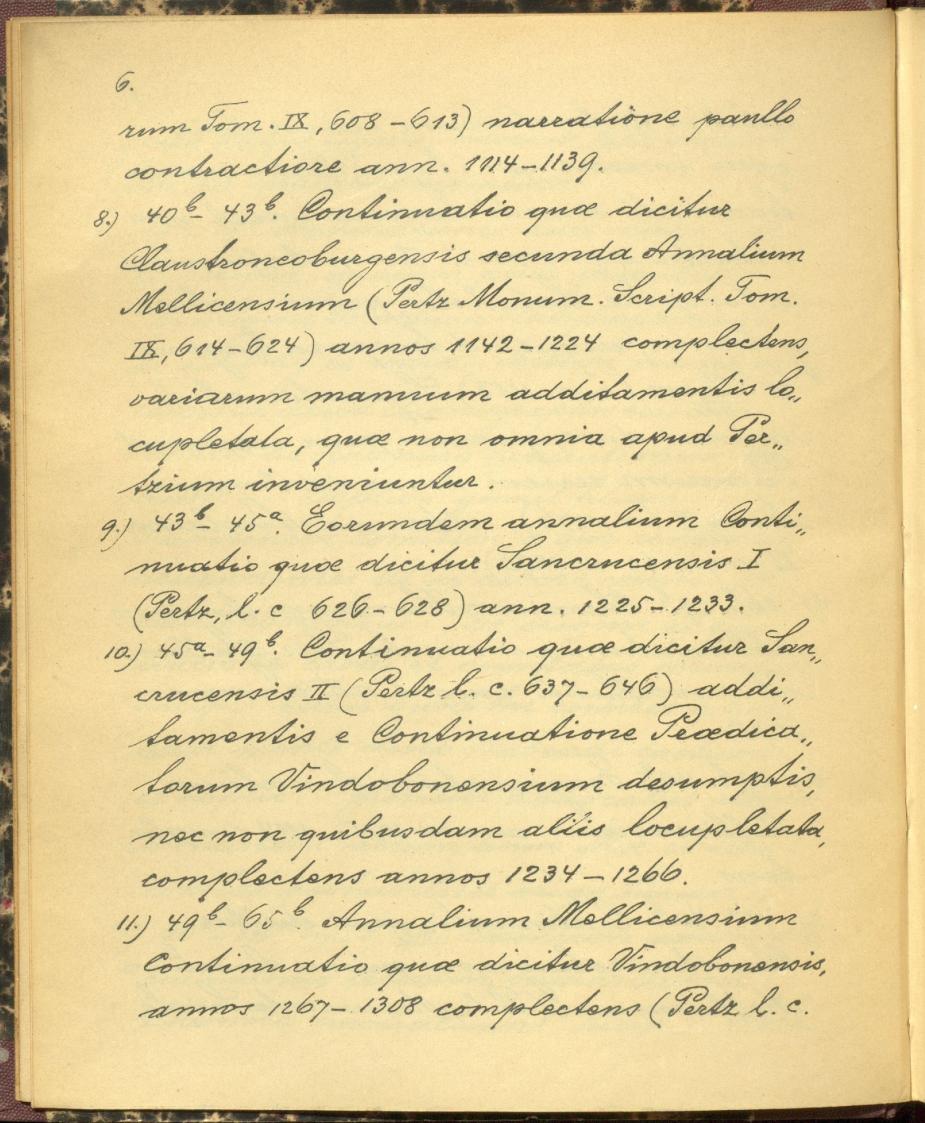 6.
rum Tom. IX, 608–613) narratione paullo
contractiore ann. 1114–1139.
8.) 40b– 43b. Continuatio quæ dicitur
Claustroneoburgensis secunda Annalium
Mellicensium (Pertz Monum. Script. Tom.
IX, 614–624) annos 1142–1224 complectens,
variarum manuum additamentis lo„
cupletata, quæ non omnia apud Per„
tzium inveniuntur.
9.) 43b– 45a. Eorundem annalium Conti„
nuatio quæ dicitur Sancrucensis I
(Pertz, l. c 626–628) ann. 1225–1233.
10.) 45a– 49b. Continuatio quæ dicitur San„
crucensis II (Pertz l. c. 637–646) addi„
tamentis e Continuatione Prædica„
torum Vindobonensium desumptis,
nec non quibusdam aliis locupletata,
complectens annos 1234–1266.
11.) 49b– 65b. Annalium Mellicensium
Continuatio quæ dicitur Vindobonensis,
annos 1267–1308 complectens (Pertz l. c.